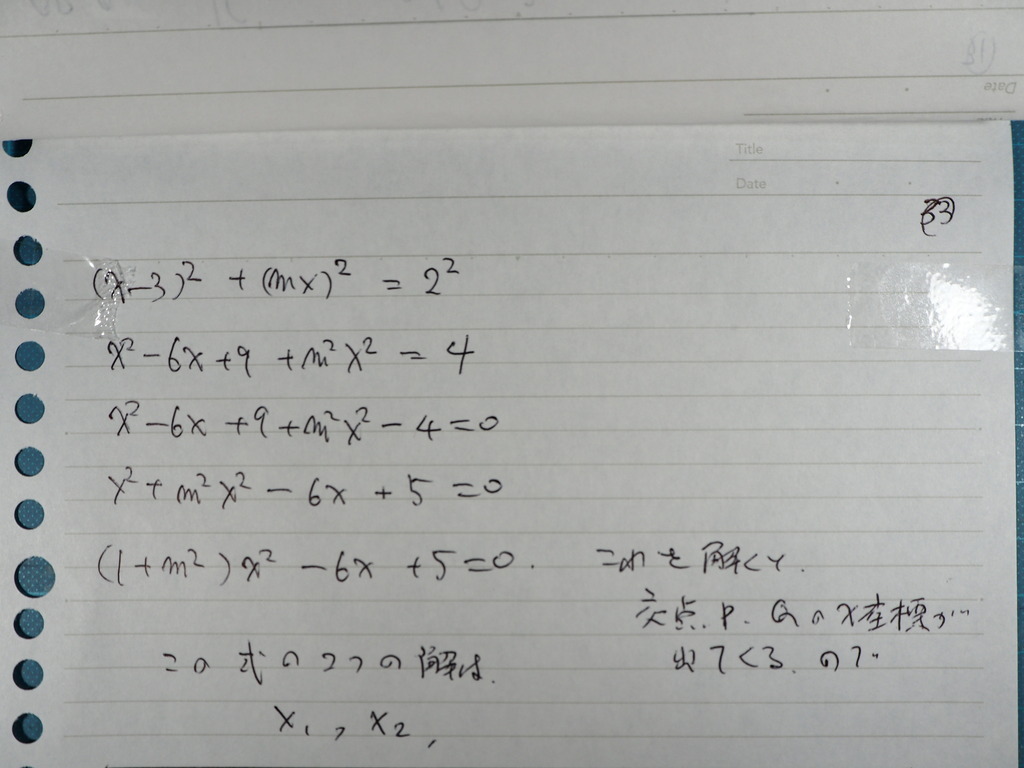 Title
Date
33
(x-3)² + (mx)² = 2²
x² - 6x + 9 + m²x² = 4
x² - 6x + 9 + m²x² - 4 = 0
x² + m²x² - 6x + 5 = 0
(1 + m²)x² - 6x + 5 = 0. これを解くと.
交点.P.Qのx座標が
出てくる.ので
この式の2つの解は.
x₁, x₂,